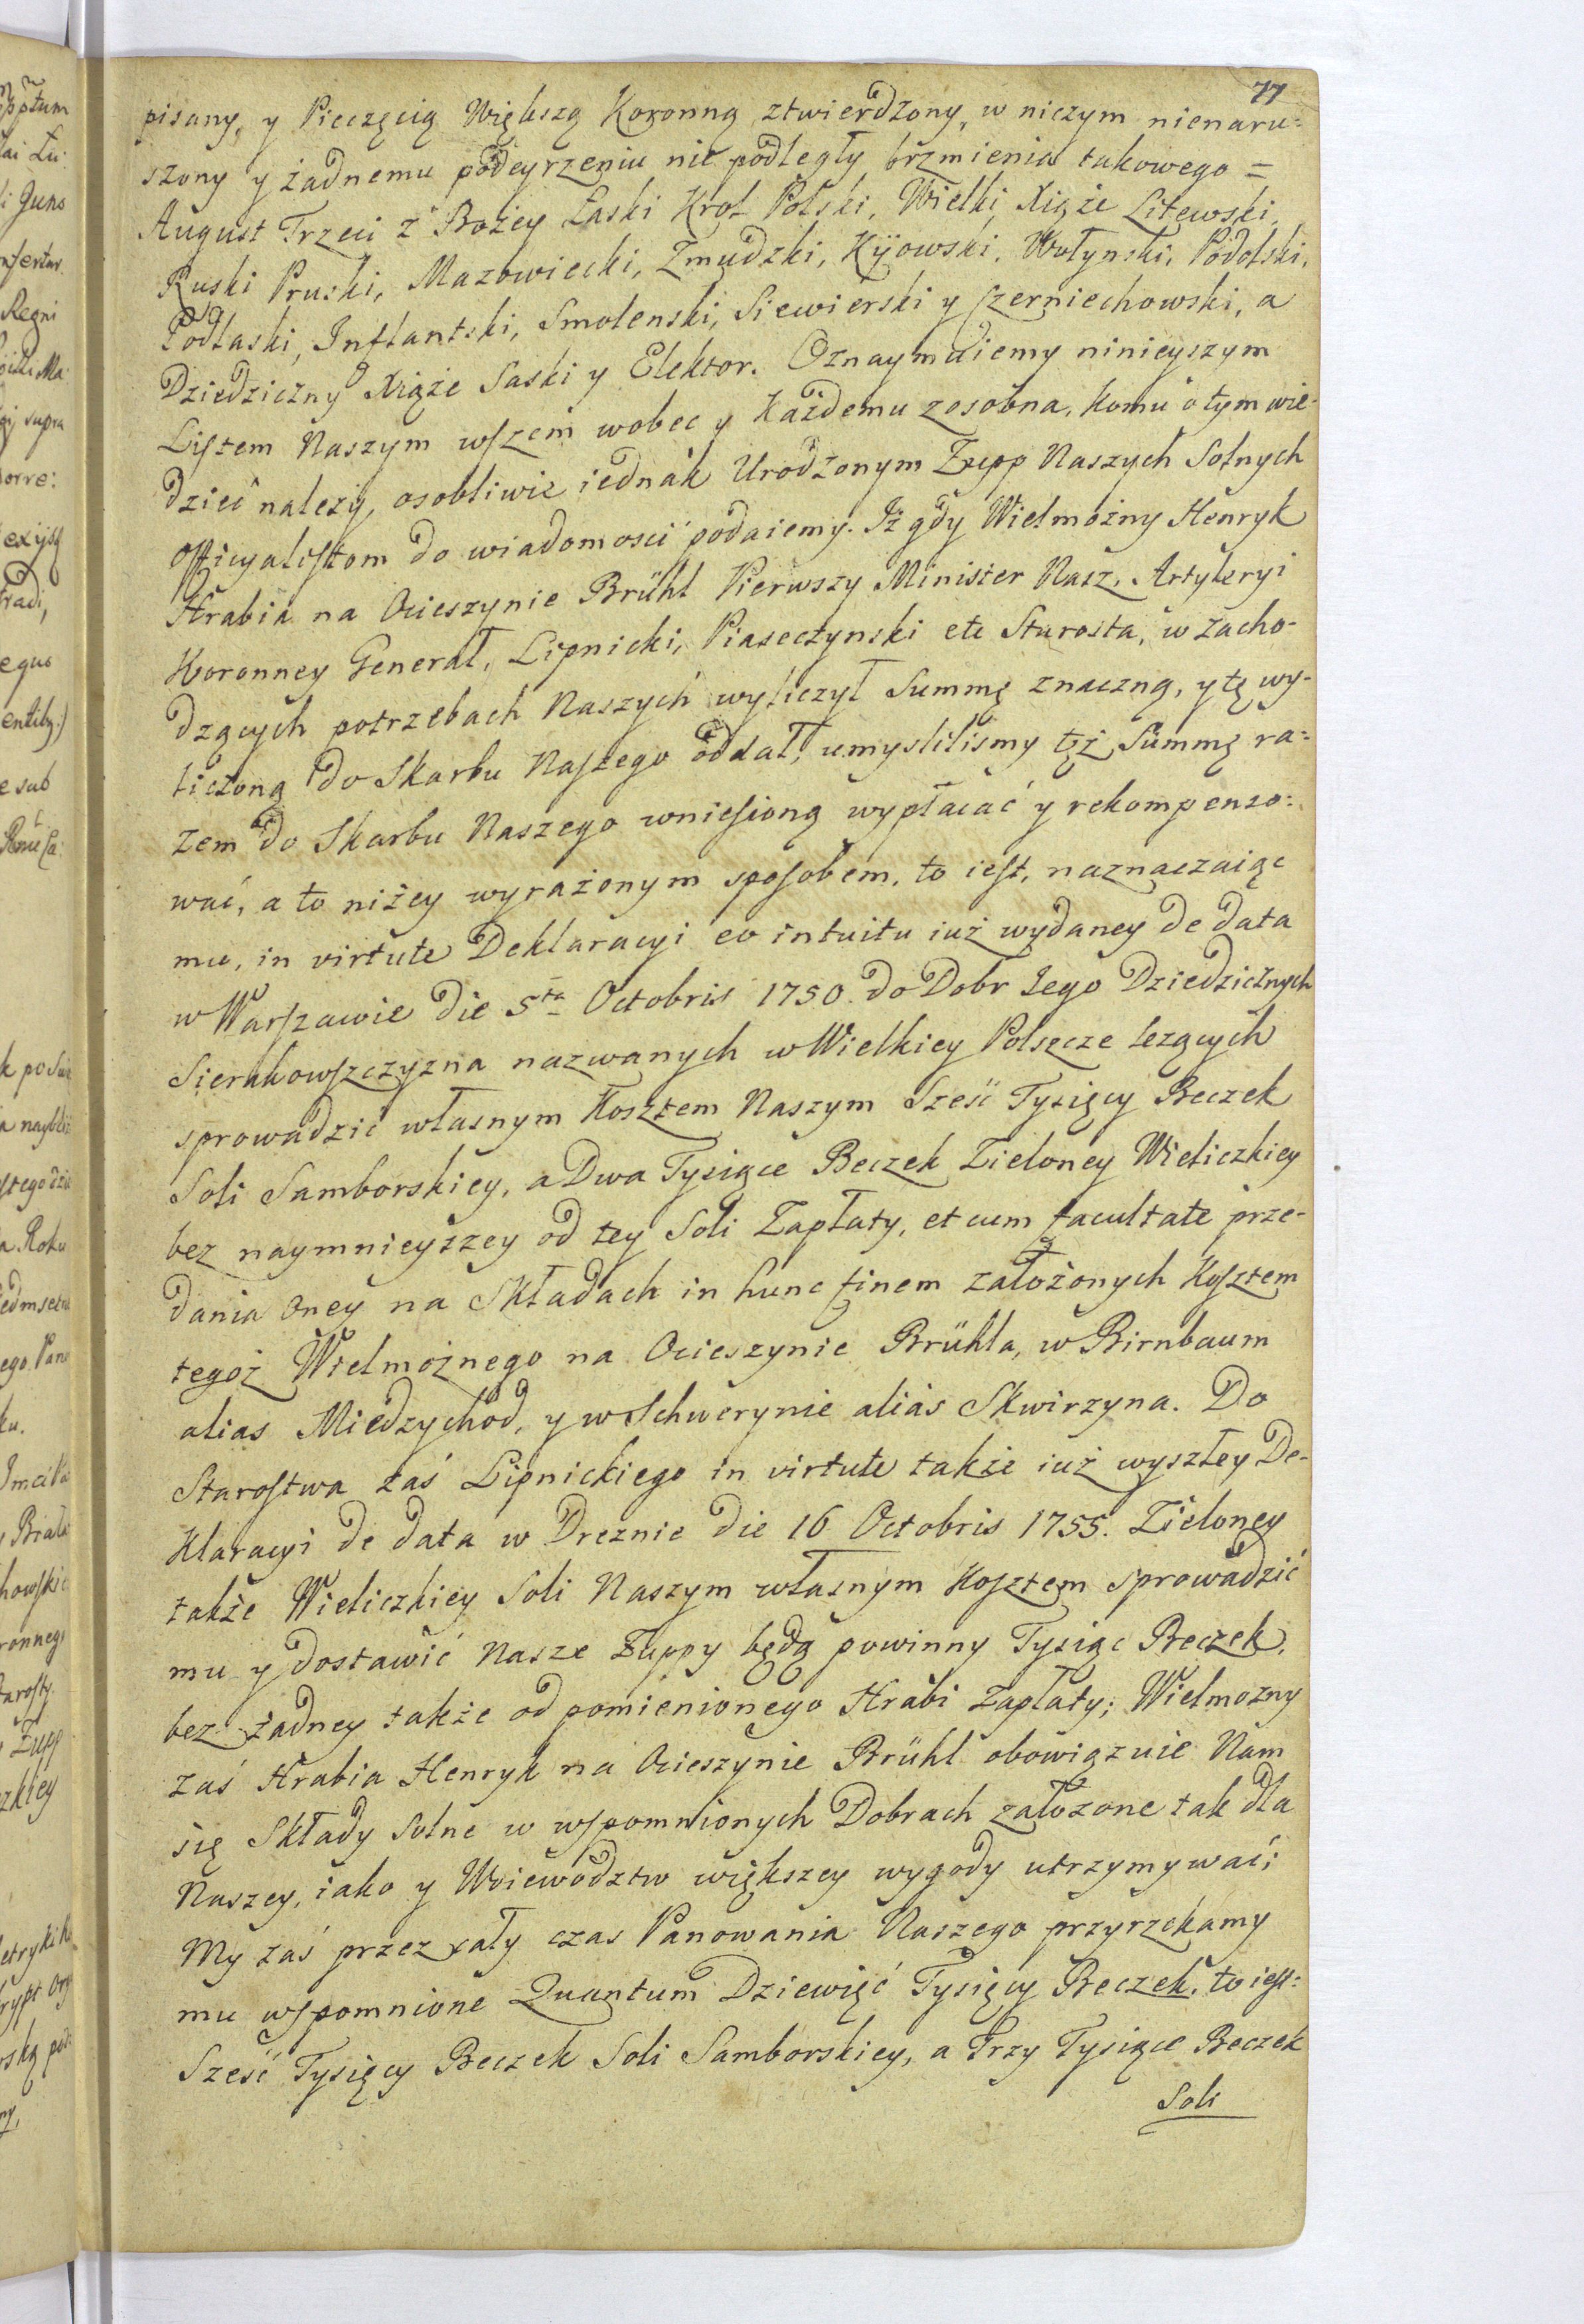 77
pisany, y Pieczęcią Większą Koronną ztwierdzony, w niczym nienaru=
szony y żadnemu podeyrzeniu nie podległy brzmienia takowego =
August Trzeci z Bożey Łaski Krol Polski, Wielki Xiąże Litewski,
Ruski Pruski, Mazowiecki, Zmudzki, Kijowski, Wołynski, Podolski,
Podlaski, Inflantski, Smolenski, Siewierski y Czerniechowski, a
Dziedziczny Xiąże Saski y Elektor. Oznaymuiemy ninieyszym
Listem Naszym wszem wobec y Każdemu zosobna, komu o tym wie-
dzieć należy, osobliwie iednak Urodzonym Zupp Naszych Solnych
Officyalistom do wiadomości podaiemy. Iż gdy Wielmożny Henryk
Hrabia na Ocieszynie Brühl Pierwszy Minister Nasz, Artyleryi
Koronney Generał, Lipnicki, Piaseczynski etc Starosta, w zacho-
dzących potrzebach Naszych wyliczył Summę znaczną, y tę wy-
liczoną do Skarbu Naszego oddał, umyslilismy tęż Summę ra=
zem do Skarbu Naszego wniesioną wypłacać y rekompenso=
wać, a to niżey wyrażonym sposobem, to iest, naznaczaiąc
mu, in virtute Deklaracyi eo intuitu iuż wydaney de data
w Warszawie die 5ta Octobris 1750. do Dobr Jego Dziedzicznych
Sierakowszczyzna nazwanych w Wielkiey Polszcze leżących
sprowadzić własnym Kosztem Naszym Sześć Tysięcy Beczek
Soli Samborskiey, a Dwa Tysiące Beczek Zieloney Wieliczkiey
bez naymnieyszey od tey Soli Zapłaty, et cum facultate prze-
dania oney na Składach in hunc finem założonych Kosztem
tegoż Wielmożnego na Ocieszynie Brühla, w Birnbaum
alias Miedzychod, y w Schwerynie alias Skwirzyna. Do
Starostwa zaś Lipnickiego in virtute także iuż wyszłey De-
klaracyi de data w Dreznie die 16 Octobris 1755. Zieloney
także Wieliczkiey Soli Naszym własnym Kosztem sprowadzić
mu y dostawić Nasze Zuppy będą powinny Tysiąc Beczek,
bez żadney także od pomienionego Hrabi zapłaty; Wielmozny
zaś Hrabia Henryk na Ocieszynie Brühl obowiązuie Nam
się Składy Solne w wspomnionych Dobrach założone tak dla
Naszey, iako y Woiewodztw większey wygody utrzymywać;
My zaś przez cały czas Panowania Naszego przyrzekamy
mu wspomnione Quantum Dziewięć Tysięcy Beczek, to iest:
Sześć Tysięcy Beczek Soli Samborskiey, a Trzy Tysiące Beczek
Soli